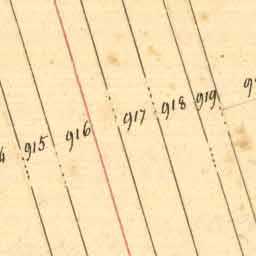 915 916 917 918 919